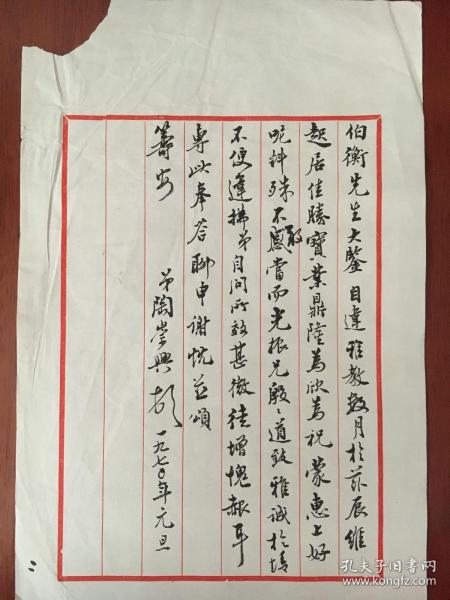 伯衡先生大鑒 自違雅教数月於茲辰維
起居佳勝寶業鼎隆為欣為祝 蒙惠上好
呢料殊不敢當而光根兄殷殷道致雅誠於情
不便違拂弟自问所效甚微徒增愧赧耳
專此奉答聊申谢忱並頌
籌安
弟陶崇興 一九七〇年元旦
二
孔夫子旧书网